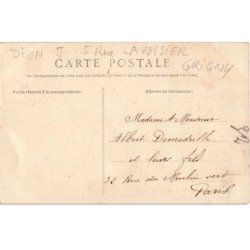 DION J.. 5 Rue LAVOISIER
GRIGNY
CARTE POSTALE
La Correspondance au recto n'est pas acceptée par tous les pays étrangers
Partie réservée à la correspondance
Adresse du destinataire
Madame & Monsieur
Albert Demadrille
et leurs fils
32 Rue du Moulin vert
Paris